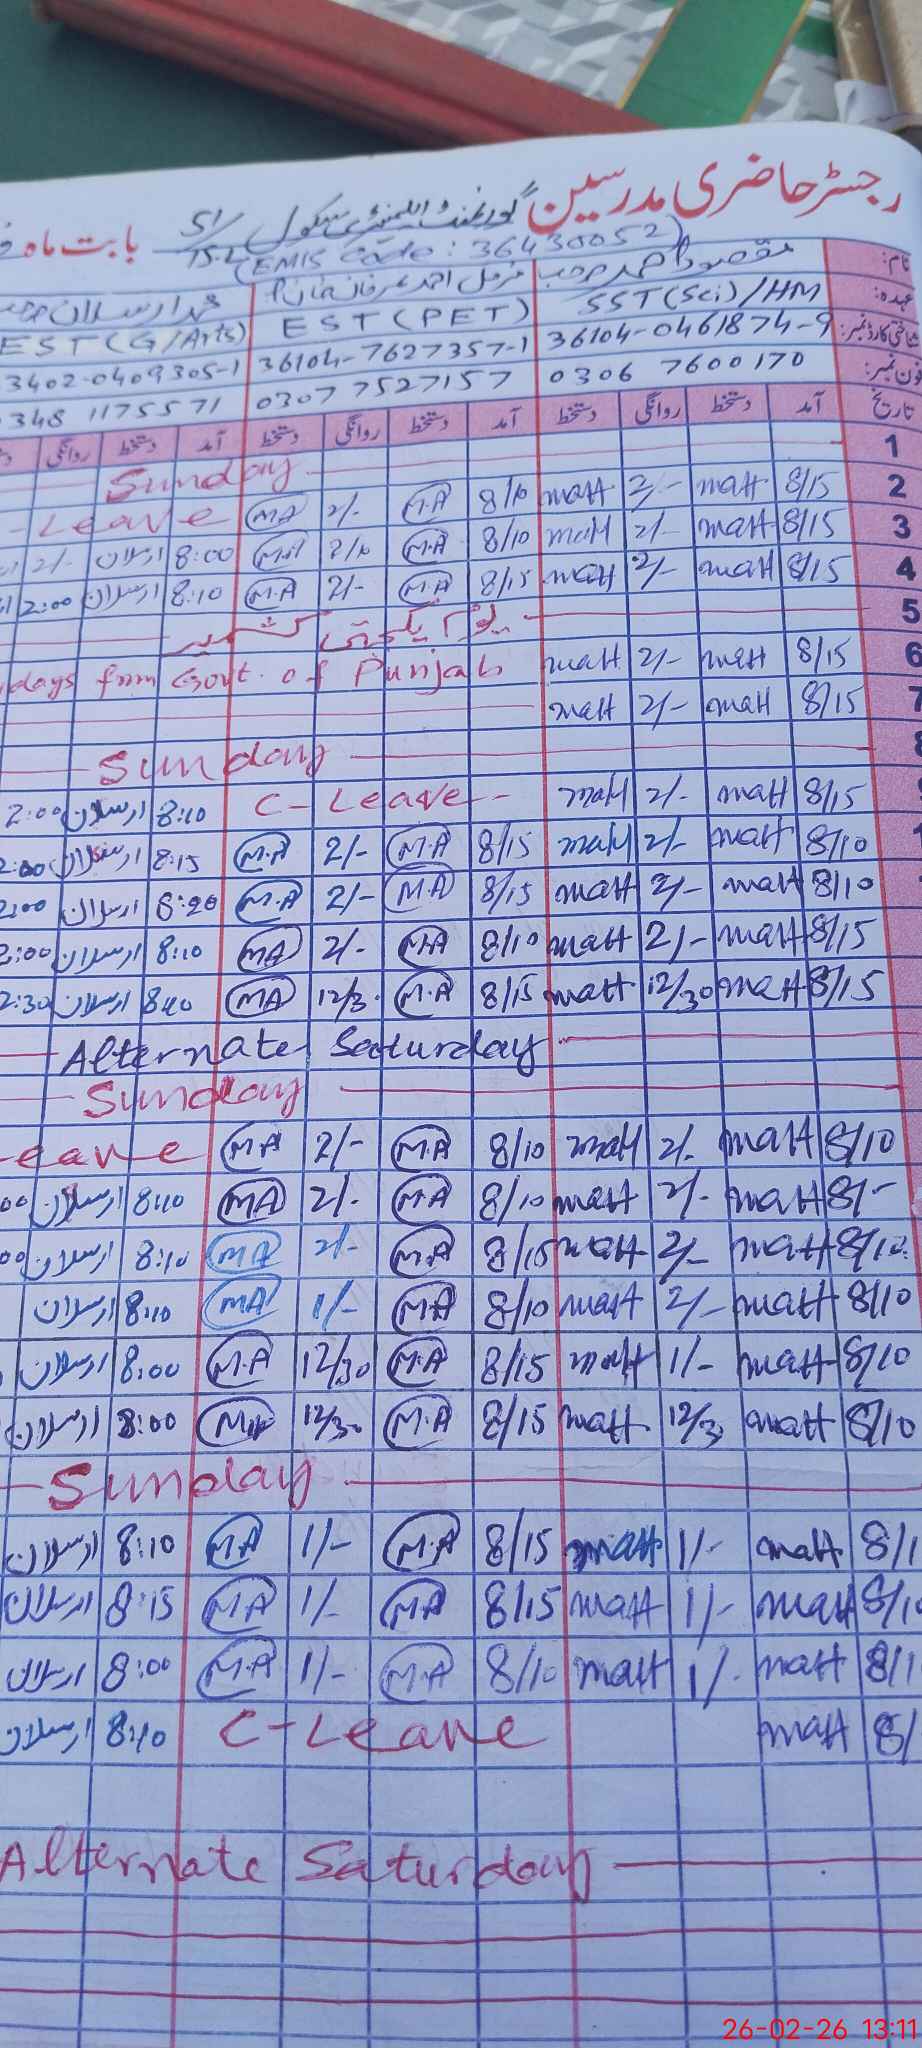 رجسٹر حاضری مدرسین گورنمنٹ ایلیمنٹری سکول 51/15.L بابت ماہ
(EMIS Code: 36430052)
نام: مقصود احمد
عہدہ: SST(Sci)/HM EST(PET) EST(G/Arts)
شناختی کارڈ نمبر: 36104-0461874-9 36104-7627357-1 3402-0409305-1
فون نمبر: 0306 7600170 0307 7527157 348 1175571
تاریخ آمد دستخط روانگی دستخط آمد دستخط روانگی دستخط آمد دستخط روانگی
1 Sunday
2 8/15 maH 2/- maH 8/10 M.A 2/- MA Leave
3 8/15 maH 2/- maH 8/10 M.A 2/10 M.A 8:00 ارسلان 2/-
4 8/15 maH 2/- maH 8/15 M.A 2/- M.A 8:10 ارسلان 2:00
5 یوم یکجہتی کشمیر
6 8/15 maH 2/- maH days from Govt. of Punjab
7 8/15 maH 2/- maH
Sunday
8/15 maH 2/- maH C-Leave 8:10 ارسلان 2:00
8/10 maH 2/- maH 8/15 M.A 2/- M.A 8:15 ارسلان 2:00
8/10 maH 2/- maH 8/15 MA 2/- M.A 8:20 ارسلان 2:00
8/15 maH 2/- maH 8/10 MA 2/- MA 8:10 ارسلان 2:00
8/15 maH 12/30 maH 8/15 M.A 12/3. MA ارسلان 2:30
Alternate Saturday
Sunday
8/10 maH 2/- maH 8/10 M.A 2/- MA eave
8/- maH 2/- maH 8/10 MA 2/- MA 8:10 ارسلان 00
maH 2/- maH 8/15 M.A 2/- MA 8:10 ارسلان 00
8/10 maH 2/- maH 8/10 M.A 1/- MA 8:10 ارسلان
8/10 maH 1/- maH 8/15 M.A 12/30 M.A 8:00 ارسلان
8/10 maH 12/3. maH 8/15 M.A 12/3. 8:00 ارسلان
Sunday
8/1 maH 1/- maH 8/15 M.A 1/- MA 8:10 ارسلان
8/1 maH 1/- maH 8/15 MA 1/- MA 8:15 ارسلان
8/1 maH 1/- maH 8/10 M.A 1/- M.A 8:00 ارسلان
8/ maH C-Leave 8:10 ارسلان
Alternate Saturday
26-02-26 13:11